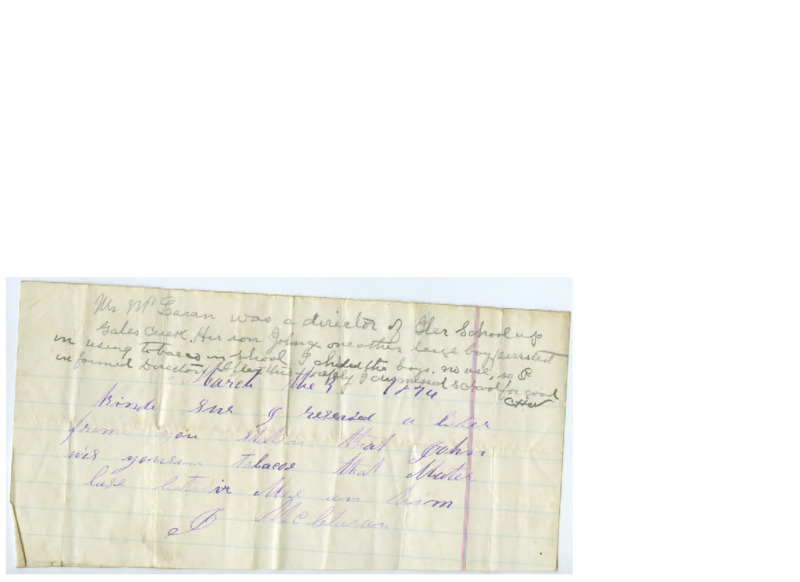 Mr Mc Laran was a director of Glen School up
Gales Creek. Her son John & one other large boy persisted
in using tobacco in school I chided the boys. no use, so I
informed Director. After this reply I dismissed school for good
CHW
March the 9 1874
kinde Sur I reseived a leter
frome you statin that John
wes yousen tobacoe that Mater
lase betwix Mee an him
J McClaran